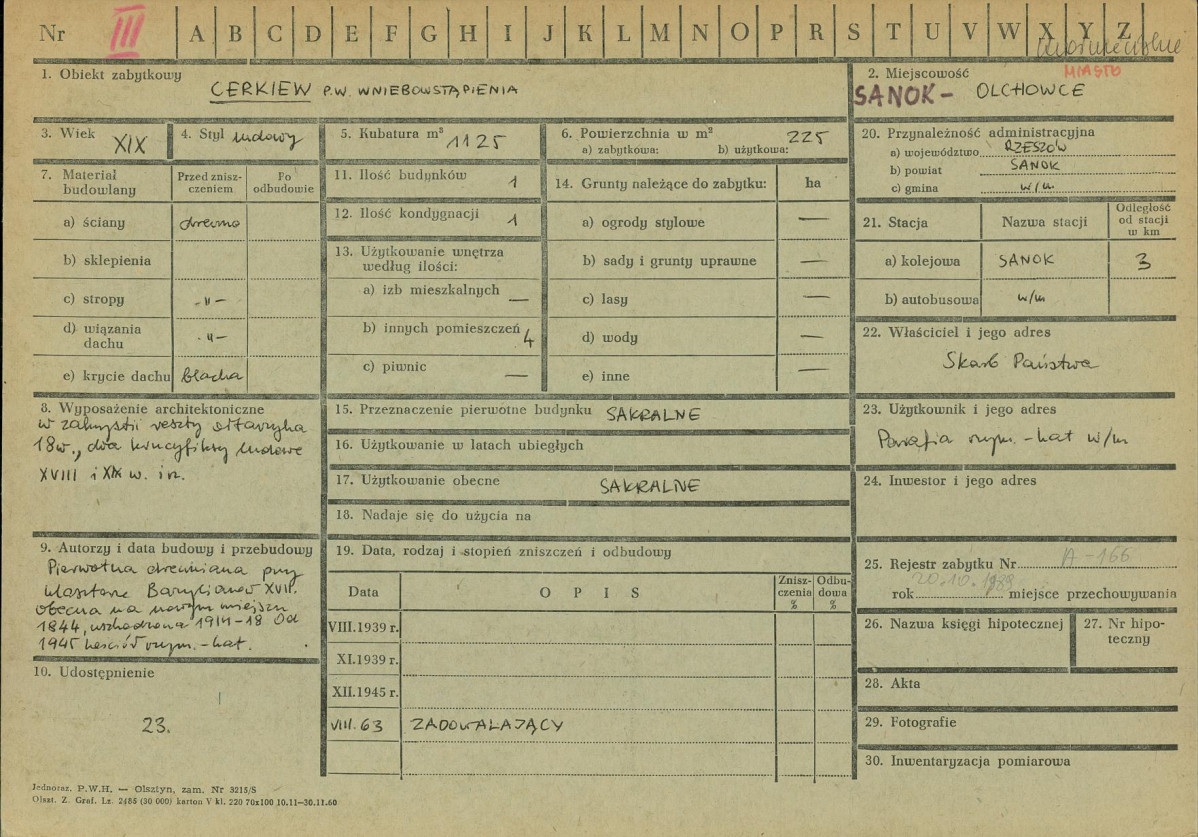 Nr III A B C D E F G H I J K L M N O P R S T U V W X Y Z
MIASTO
1. Obiekt zabytkowy
CERKIEW P.W. WNIEBOWSTĄPIENIA
2. Miejscowość
SANOK - OLCHOWCE
3. Wiek XIX
4. Styl ludowy
5. Kubatura m³ 1125
6. Powierzchnia w m² 225
a) zabytkowa: b) użytkowa:
20. Przynależność administracyjna
a) województwo RZESZÓW
b) powiat SANOK
c) gmina w/m
7. Materiał budowlany
Przed zniszczeniem
Po odbudowie
a) ściany drewno
b) sklepienia
c) stropy -"-
d) wiązania dachu -"-
e) krycie dachu blacha
11. Ilość budynków 1
12. Ilość kondygnacji 1
13. Użytkowanie wnętrza według ilości:
a) izb mieszkalnych —
b) innych pomieszczeń 4
c) piwnic —
14. Grunty należące do zabytku: ha
a) ogrody stylowe —
b) sady i grunty uprawne —
c) lasy —
d) wody —
e) inne —
21. Stacja
Nazwa stacji
Odległość od stacji w km
a) kolejowa SANOK 3
b) autobusowa w/m
22. Właściciel i jego adres
Skarb Państwa
8. Wyposażenie architektoniczne
w zakrystii reszty ołtarzyka
18w., dwa krucyfiksy ludowe
XVIII i XIX w. i n.
15. Przeznaczenie pierwotne budynku SAKRALNE
16. Użytkowanie w latach ubiegłych
17. Użytkowanie obecne SAKRALNE
18. Nadaje się do użycia na
23. Użytkownik i jego adres
Parafia rzym.-kat w/m
24. Inwestor i jego adres
9. Autorzy i data budowy i przebudowy
Pierwotna drewniana przy
klasztorze Bazylianów XVII.
obecna na nowym miejscu
1844, uszkodzona 1914-18 Od
1945 kościół rzym.-kat.
19. Data, rodzaj i stopień zniszczeń i odbudowy
Data
OPIS
Zniszczenia %
Odbudowa %
VIII.1939 r.
XI.1939 r.
XII.1945 r.
VIII.63 ZADOWALAJĄCY
25. Rejestr zabytku Nr A-166
rok 20.10.1989 miejsce przechowywania
26. Nazwa księgi hipotecznej
27. Nr hipoteczny
10. Udostępnienie
23.
28. Akta
29. Fotografie
30. Inwentaryzacja pomiarowa
Jednoraz. P.W.H. — Olsztyn, zam. Nr 3215/S
Olszt. Z. Graf. Lz. 2485 (30 000) karton V kl. 220 70x100 10.11—30.11.60